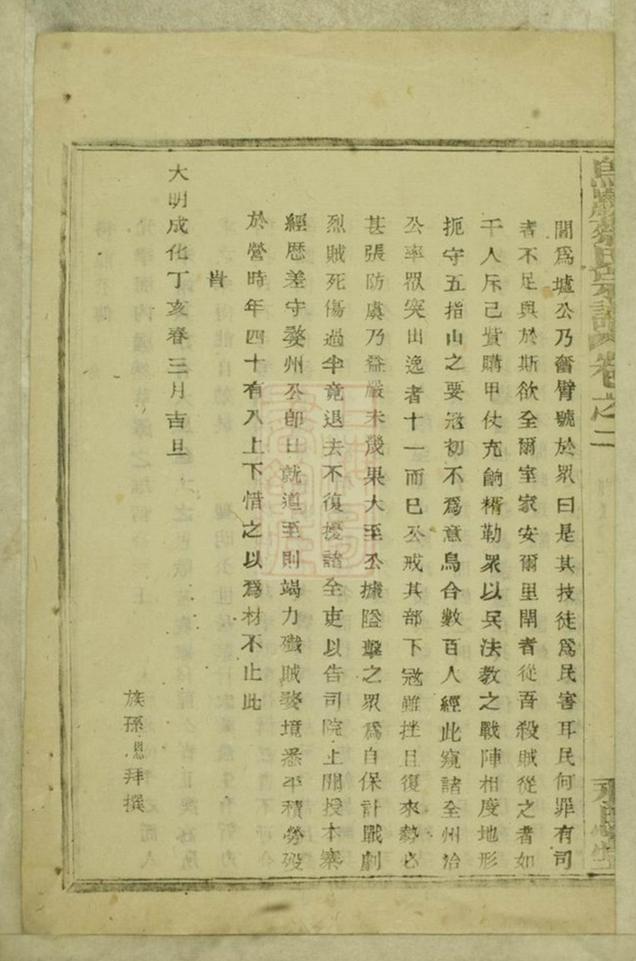 閭爲墟公乃奮臂號於眾曰是其技徒爲民害耳民何罪有司
者不足與於斯欲全爾室家安爾里閈者從吾殺賊從之者如
干人斥己貲購甲仗充餉糈勒眾以兵法教之戰陣相度地形
扼守五指山之要寇初不爲意鳥合數百人經此窺諸全州治
公率眾突出逸者十一而已公戒其部下寇雖挫且復來勢必
甚張防虞乃益嚴未幾果大至公據隘擊之眾爲自保計戰劇
烈賊死傷過半竟退去不復擾諸全吏以告司院上聞授本寨
經歷差守婺州公卽日就道至則竭力殲賊婺境悉平積勞歿
於營時年四十有八上下惜之以爲材不止此
旹
大明成化丁亥春三月吉旦
族孫恩拜撰
氏宗譜卷之二